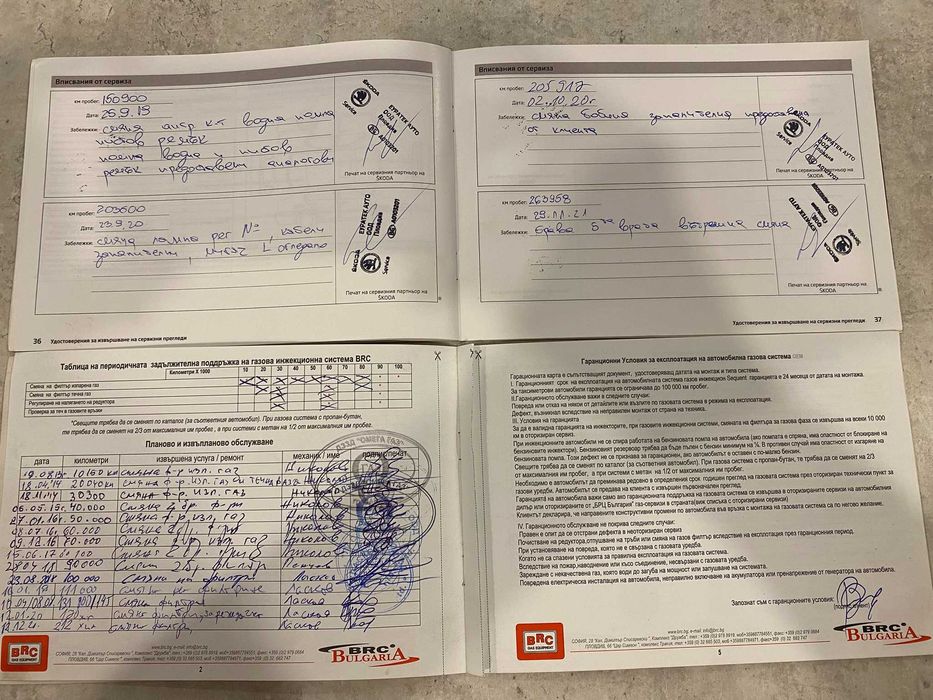 Вписвания от сервиза
км пробег: 150900
Дата: 25.9.19
Забележки: смяна ангр к-т водна помпа
пистов ремък
помпа водна и пистов
ремък предоставени
Печат на сервизния партньор на
ŠKODA
км пробег: 203600
Дата: 23.9.20
Забележки: смяна лампа рег №, кабели
запалителни, L огледало
Печат на сервизния партньор на
ŠKODA
36 Удостоверения за извършване на сервизни прегледи
Вписвания от сервиза
км пробег: 205917
Дата: 02.10.20г
Забележки: смяна бобина запалителна предоставена
от клиента
Печат на сервизния партньор на
ŠKODA
км пробег: 263958
Дата: 29.11.21
Забележки: Брава 5та врата вътрешна смяна
Печат на сервизния партньор на
ŠKODA
Удостоверения за извършване на сервизни прегледи 37
Таблица на периодичната задължителна поддръжка на газова инжекционна система BRC
Километри X 1000
10 20 30 40 50 60 70 80 90 100
Смяна на филтър изпарена газ
Смяна на филтър течна газ
Регулиране на налягането на редуктора
Проверка за теч в газовите връзки
*Свещите трябва да се сменят по каталог (за съответния автомобил). При газова система с пропан-бутан,
те трябва да се сменят на 2/3 от максималния им пробег, а при системи с метан на 1/2 от максималния им пробег.
Планово и извънпланово обслужване
дата километри извършена услуга / ремонт механик / име подпис/печат
10160 км смяна ф-р изп. газ Николов
18.04.14 20040км смяна ф-р изп. газ Николов
18.11.14 30300 смяна ф-р. изп. газ Николов
06.05.15г. 40.000 Смяна 2 бр. ф-ри Николов
27.01.16г. 50.000 Смяна ф-р. изп. газ Николов
60.000 Смяна Николов
70.000 Смяна Николов
15.06.17 Смяна 2 бр. Николов
90000 Смяна 2 бр. филтър
23.08.18г 100 000 Смяна на филтри Ласков
10.01.19 111 000 Смяна Ласков
Смяна филтри Ласков
Смяна филтри Ласков
Смяна филтри Ласков
BRC
GAS EQUIPMENT
www.brc.bg e-mail: info@brc.bg
BRC
BULGARIA
2
Гаранционни Условия за експлоатация на автомобилна газова система
Гаранционната карта е съпътстващият документ, удостоверяващ датата на монтаж и типа система.
I. Гаранционният срок на експлоатация на автомобилната система газов инжекцион Sequent: гаранцията е 24 месеца от датата на монтажа.
За таксиметрови автомобили гаранцията се ограничава до 100 000 км пробег.
II.Гаранционното обслужване важи в следните случаи:
Повреда или отказ на някои от детайлите или възлите по газовата система в режима на експлоатация.
Дефект, възникнал вследствие на неправилен монтаж от страна на техника.
III. Условия на гаранцията
За да е валидна гаранцията на инжекторите, при газови инжекционни системи, смяната на филтъра за газова фаза се извършва на всеки 10 000
км в оторизиран сервиз.
При инжекционни автомобили не се спира работата на бензиновата помпа на автомобила (ако помпата е спряна, има опастност от блокиране на
бензиновите инжектори). Бензиновият резервоар трябва да бъде пълен с бензин минимум на ¼. В противен случай има опастност от изгаряне на
бензиновата помпа. Този дефект не се признава за гаранционен, ако автомобилът е оставен с по-малко бензин.
Свещите трябва да се сменят по каталог (за съответния автомобил). При газова система с пропан-бутан, те трябва да се сменят на 2/3
от максималния им пробег, а при системи с метан на 1/2 от максималния им пробег.
Необходимо е автомобилът да преминава редовно в определения срок годишен преглед на газовата система през оторизиран техническия пункт за
газови уредби. Автомобилът се предава на клиента с извършен първоначален преглед.
Гаранцията на автомобила важи само ако гаранционната поддръжка на газовата система се извършва в оторизираните сервизи на автомобилния
дилър или оторизираните от „БРЦ България" газ-сервизи в страната(виж списъка с оторизирани сервизи).
Клиентът декларира, че направените конструктивни промени по автомобила във връзка с монтажа на газовата система са по негово желание.
IV. Гаранционното обслужване не покрива следните случаи:
Правен е опит да се отстрани дефекта в неоторизиран сервиз
Почистване на редуктора,отпушване на тръби или смяна на газов филтър вследствие на експлоатация през гаранционния период.
При установяване на повреда, която не е свързана с газовата уредба.
Когато не са спазени условията за правилна експлоатация на газовата система.
Вследствие на пожар,наводнение или късо съединение, несвързани с газовата уредба.
Зареждане с некачествена газ, която води до загуба на мощност или запушване на системата.
Повредена електрическа инсталация на автомобила, неправилно включване на акумулатора или пренапрежение от генератора на автомобила.
Запознат съм с гаранционните условия:
BRC
GAS EQUIPMENT
www.brc.bg e-mail: info@brc.bg
BRC
BULGARIA
5